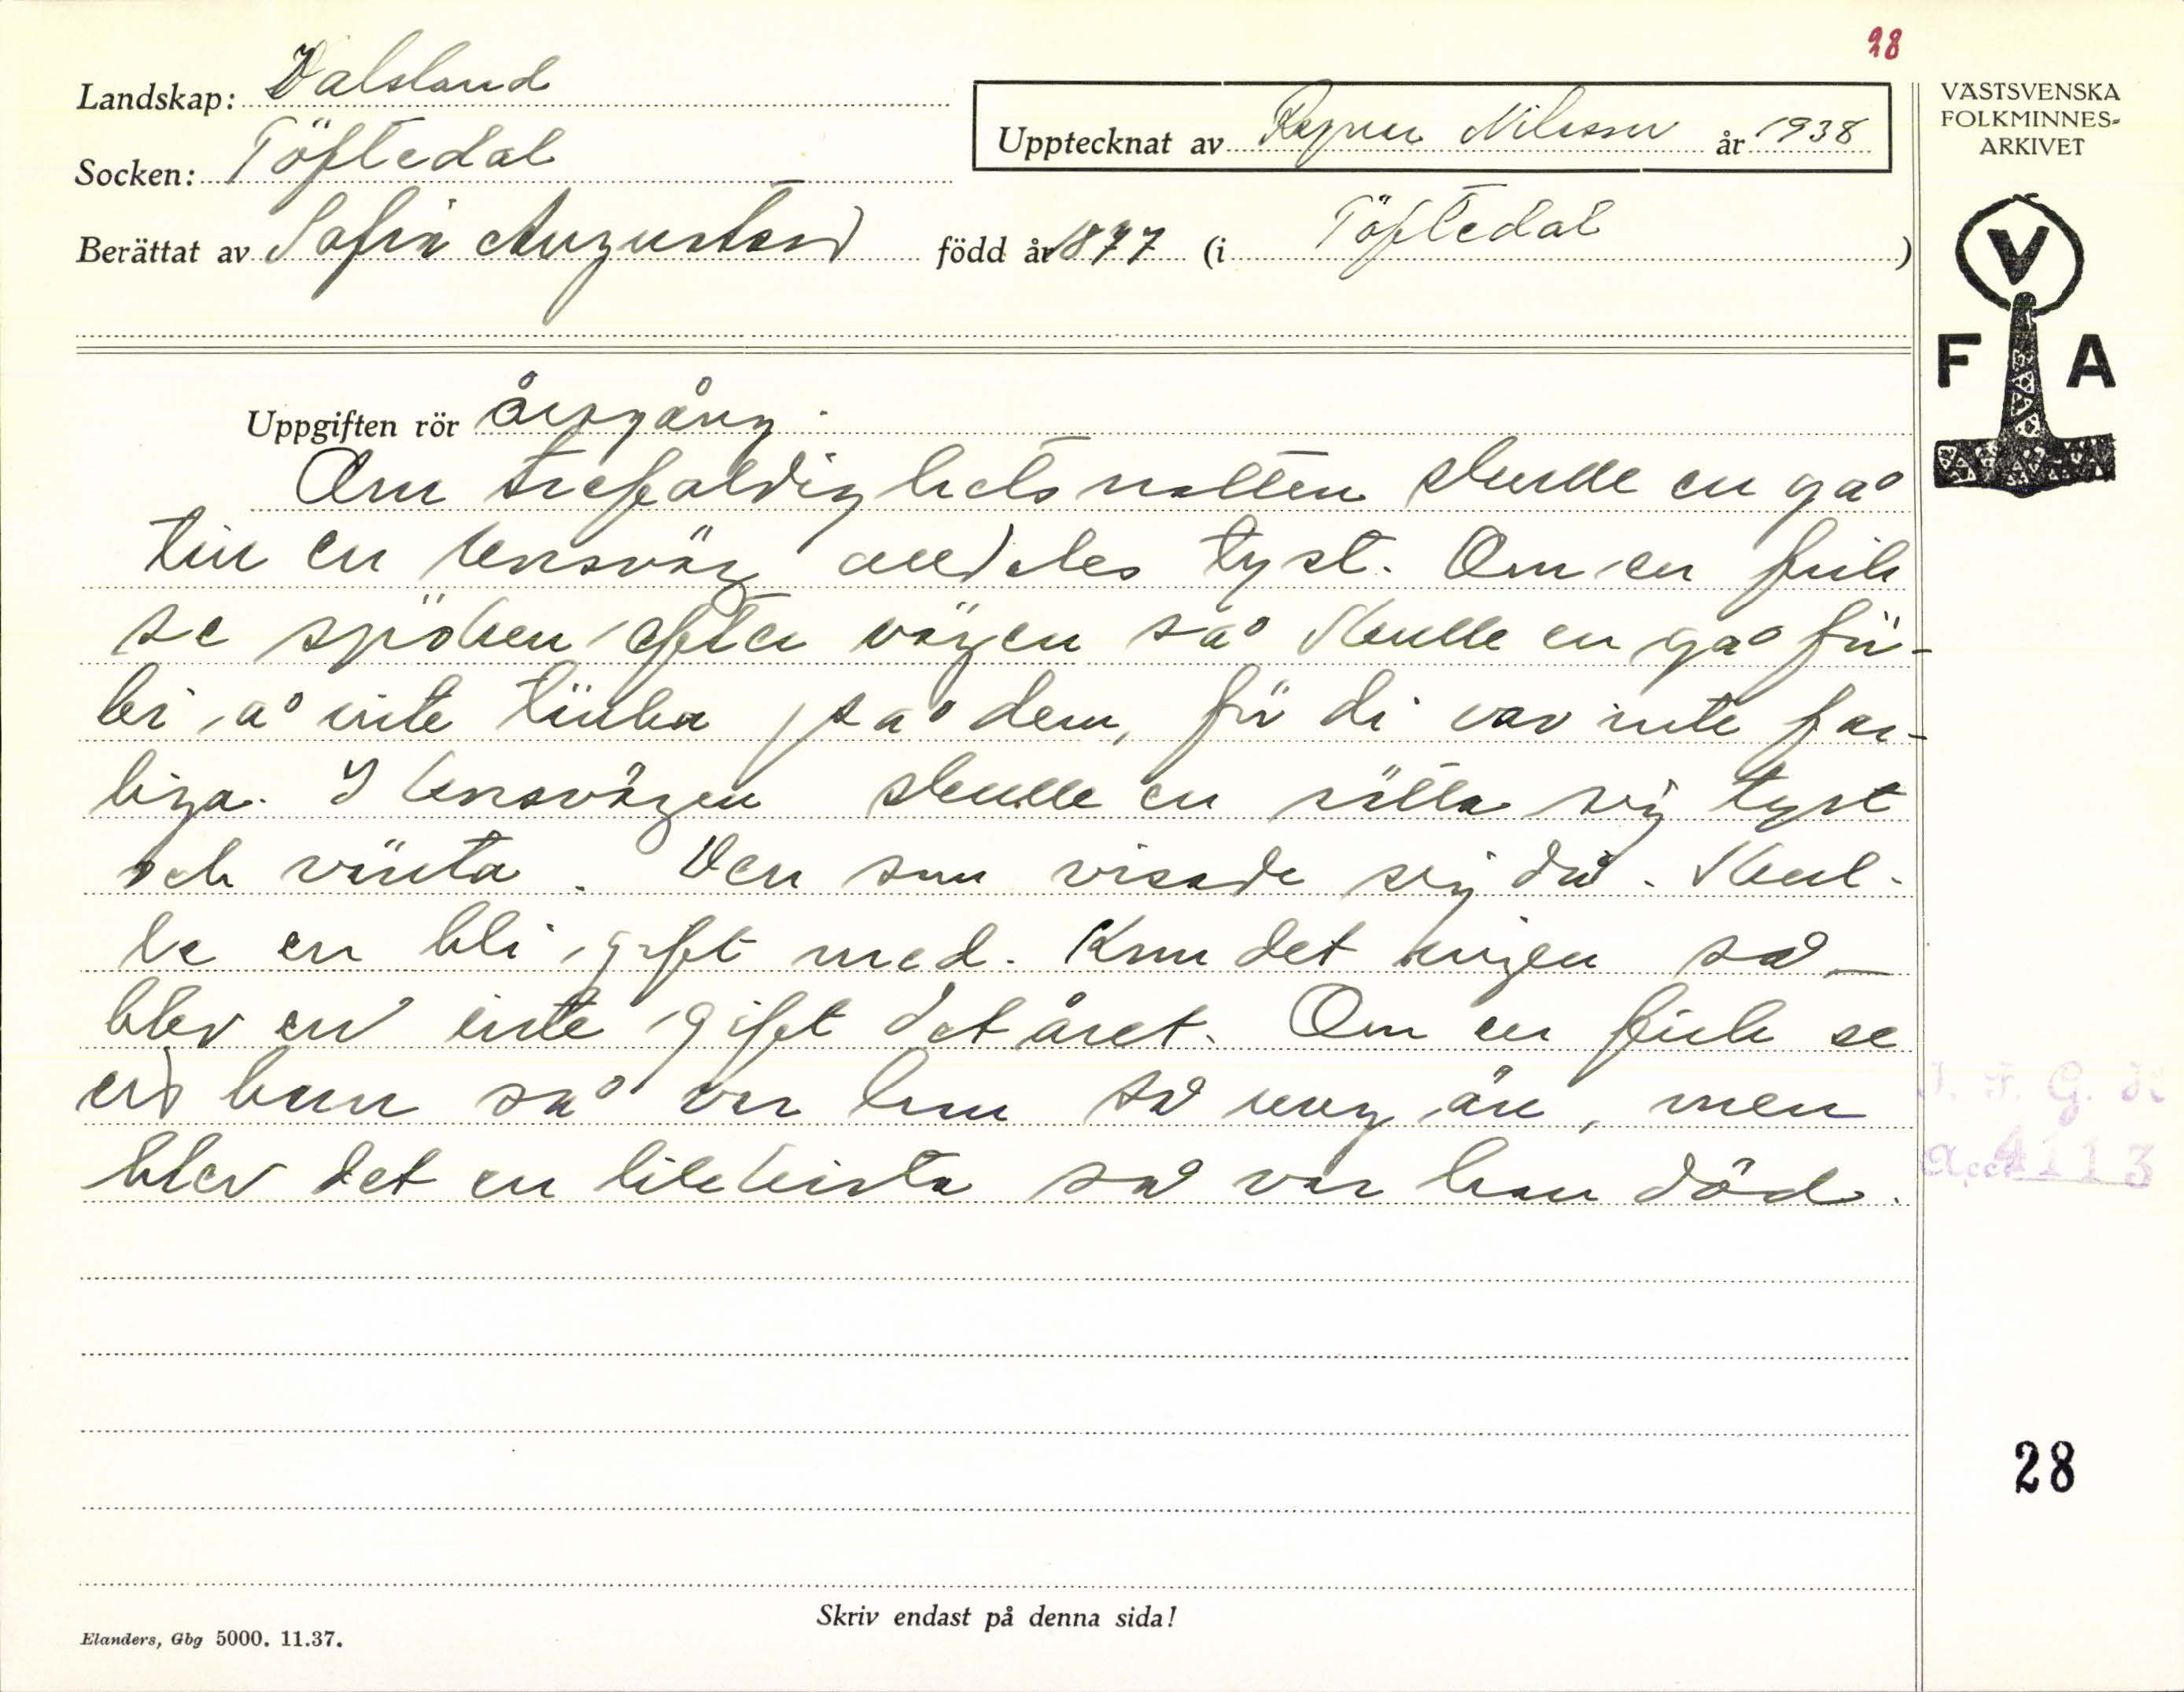 28
Landskap: Dalsland
Upptecknat av Ragnar Nilsson år 1938
VÄSTSVENSKA
FOLKMINNES-
ARKIVET
Socken: Töftedal
Berättat av Sofia Augustsson född år 1877 (i Töftedal)
V
F A
Uppgiften rör årsgång.
Om trefaldighetsnatten skulle en gå
till en korsväg alldeles tyst. Om en fick
se spöken efter vägen så skulle en gå för-
bi å inte tänka på dem, för di var inte far-
liga. I korsvägen skulle en ställa sig tyst
och vänta. Den som visade sig då. Skul-
le en bli gift med. Kom det ingen så
blev en inte gift det året. Om en fick se
en barn så var han så ung än, men
blev det en likkista så var han död.
J. F. G. s
Acc. 4113
28
Skriv endast på denna sida!
Elanders, Gbg 5000. 11.37.